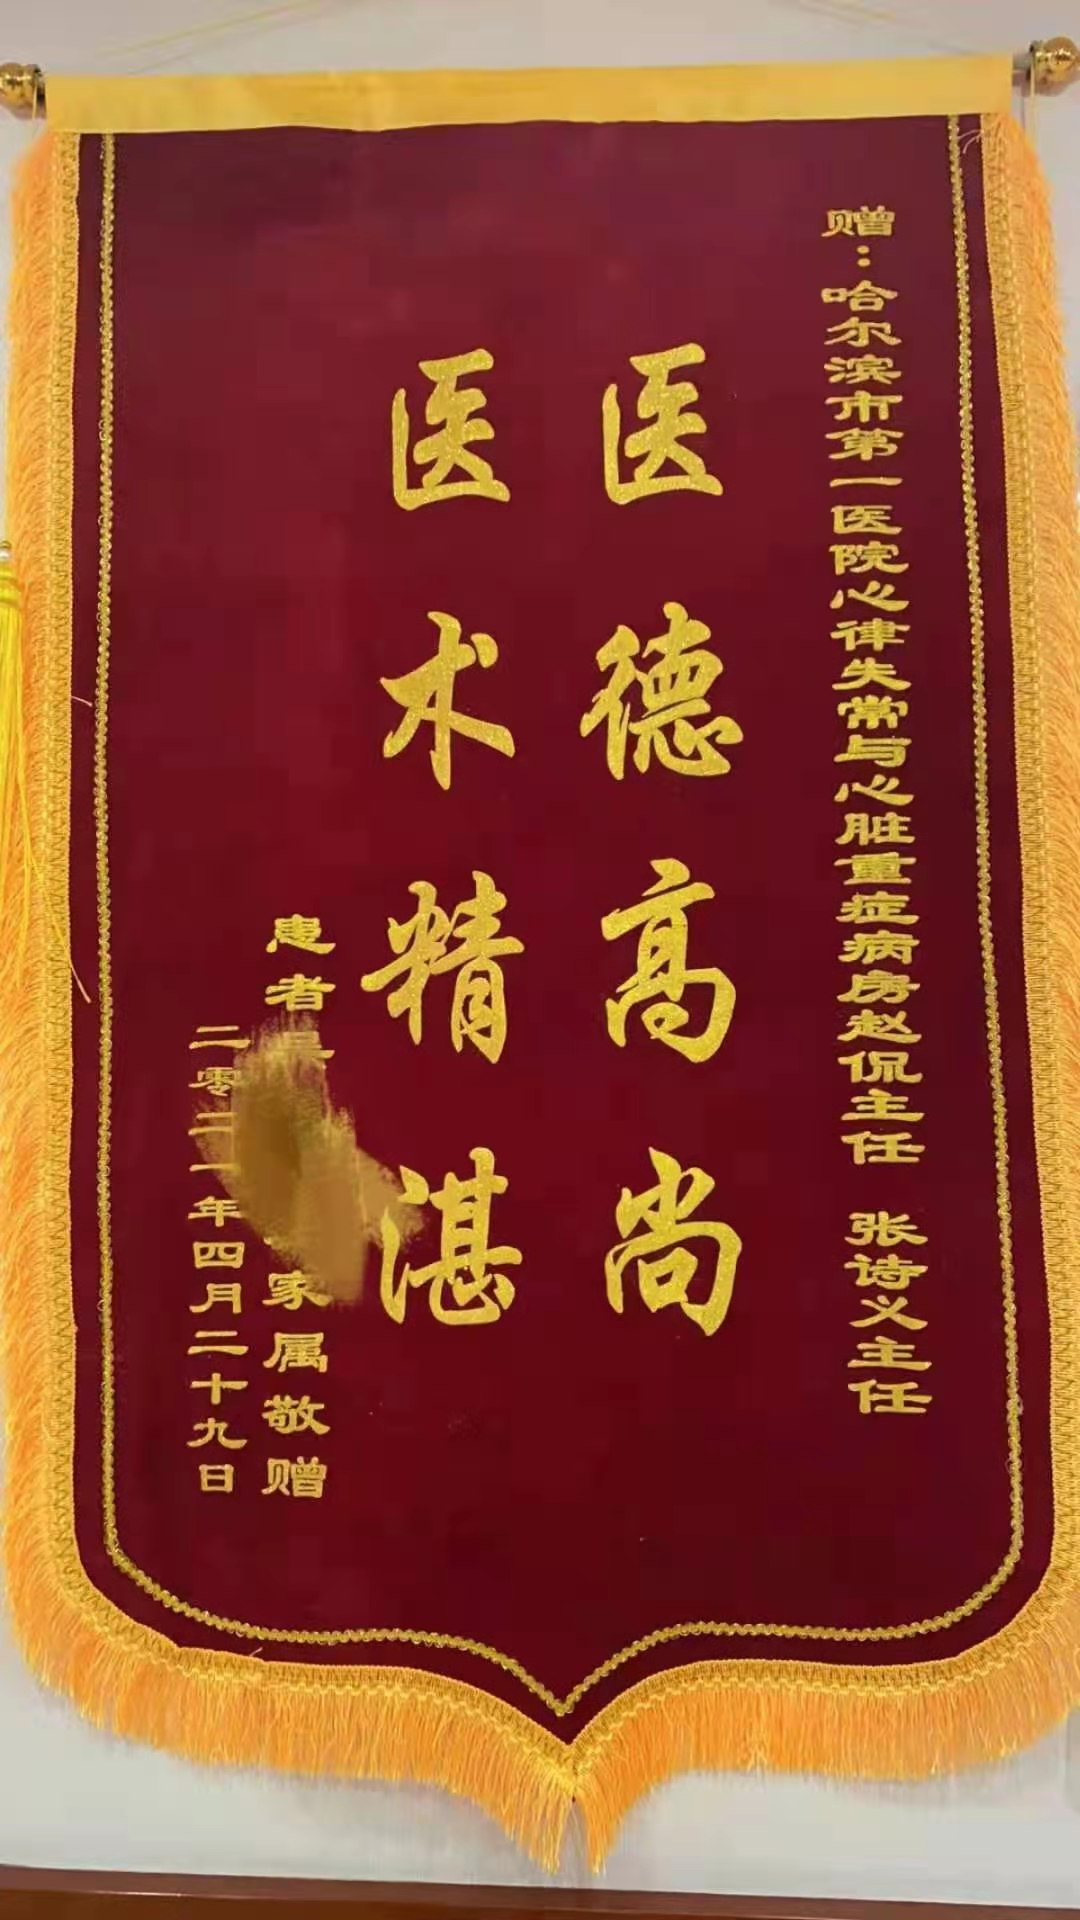 赠：哈尔滨市第一医院心律失常与心脏重症病房赵侃主任 张诗义主任
医德高尚
医术精湛
患者 家属敬赠
二零二一年四月二十九日